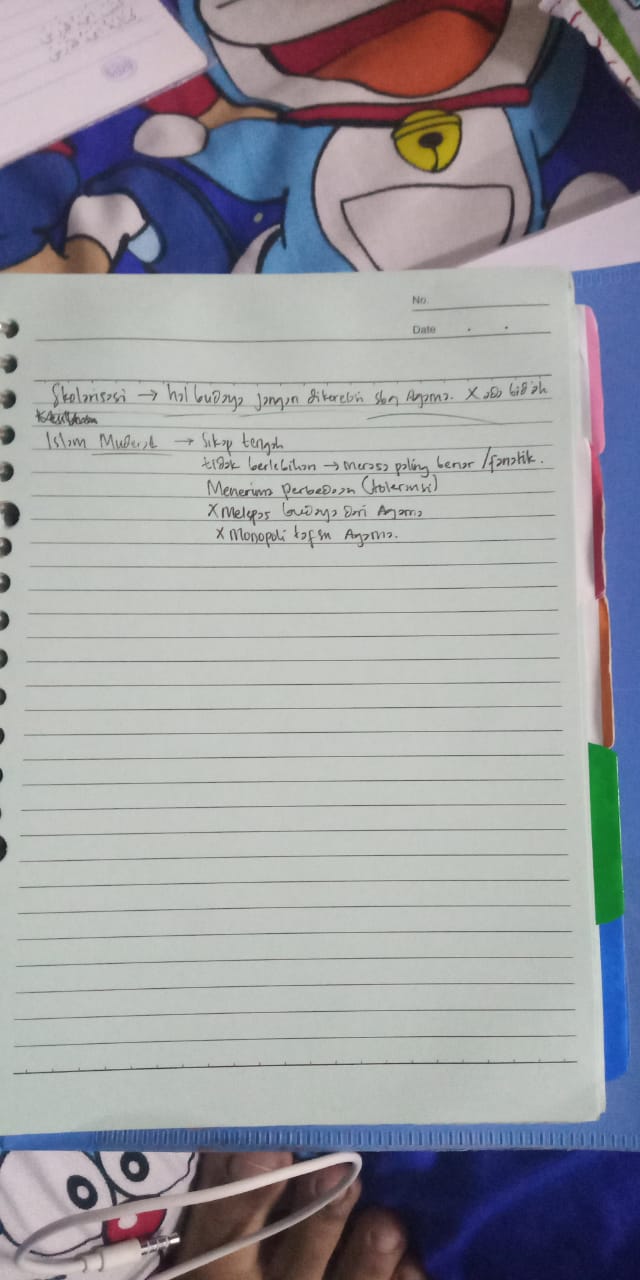 No.
Date
Skolarisasi → hal budaya jangan dikorelasi sbg Agama. X ada bid'ah
Islam Muderat → Sikap tengah
tidak berlebihan → merasa paling benar / fanatik.
Menerima perbedaan (tolerinsi)
X Melepas budaya dari Agama
X Monopoli tafsir Agama.